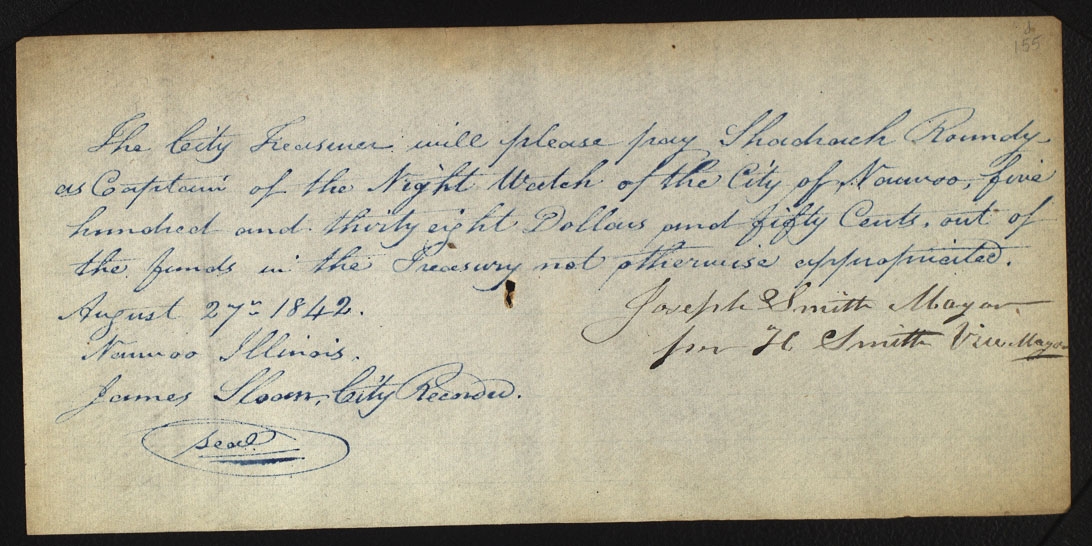 155
The City Treasurer will please pay Shadrach Roundy
as Captain of the Night Watch of the City of Nauvoo, five
hundred and thirty eight Dollars and fifty Cents, out of
the funds in the Treasury not otherwise appropriated.
August 27th 1842.
Nauvoo Illinois.
James Sloan, City Recorder.
seal
Joseph Smith Mayor
per H Smith Vice Mayor